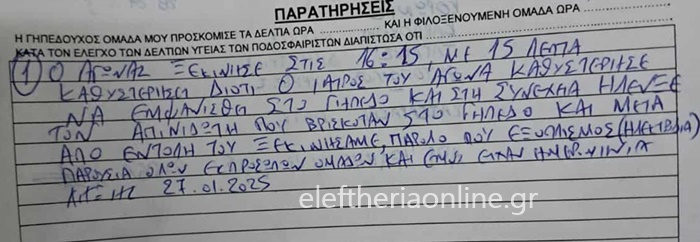 ΠΑΡΑΤΗΡΗΣΕΙΣ
Η ΓΗΠΕΔΟΥΧΟΣ ΟΜΑΔΑ ΜΟΥ ΠΡΟΣΚΟΜΙΣΕ ΤΑ ΔΕΛΤΙΑ ΩΡΑ .................. ΚΑΙ Η ΦΙΛΟΞΕΝΟΥΜΕΝΗ ΟΜΑΔΑ ΩΡΑ ..................
ΚΑΤΑ ΤΟΝ ΕΛΕΓΧΟ ΤΩΝ ΔΕΛΤΙΩΝ ΥΓΕΙΑΣ ΤΩΝ ΠΟΔΟΣΦΑΙΡΙΣΤΩΝ ΔΙΑΠΙΣΤΩΣΑ ΟΤΙ
1 Ο ΑΓΩΝΑΣ ΞΕΚΙΝΗΣΕ ΣΤΙΣ 16:15, ΜΕ 15 ΛΕΠΤΑ
ΚΑΘΥΣΤΕΡΗΣΗ ΔΙΟΤΙ Ο ΙΑΤΡΟΣ ΤΟΥ ΑΓΩΝΑ ΚΑΘΥΣΤΕΡΗΣΕ
ΝΑ ΕΜΦΑΝΙΣΘΗ ΣΤΟ ΓΗΠΕΔΟ ΚΑΙ ΣΤΗ ΣΥΝΕΧΕΙΑ ΗΛΕΝΞΕ
ΤΟΝ ΑΠΙΝΙΔΩΤΗ ΠΟΥ ΒΡΙΣΚΟΤΑΝ ΣΤΟ ΓΗΠΕΔΟ ΚΑΙ ΜΕΤΑ
ΑΠΟ ΕΝΤΟΛΗ ΤΟΥ ΞΕΚΙΝΗΣΑΜΕ, ΠΑΡΟΛΟ ΠΟΥ ΕΞΟΠΛΙΣΜΟΣ (ΗΛΕΚΤΡΟΔΙΑ)
ΠΑΡΟΥΣΙΑ ΟΛΩΝ ΕΚΠΡΟΣΩΠΩΝ ΟΜΑΔΩΝ ΚΑΙ ΕΙΧΑΝ
27.01.2025
eleftheriaonline.gr